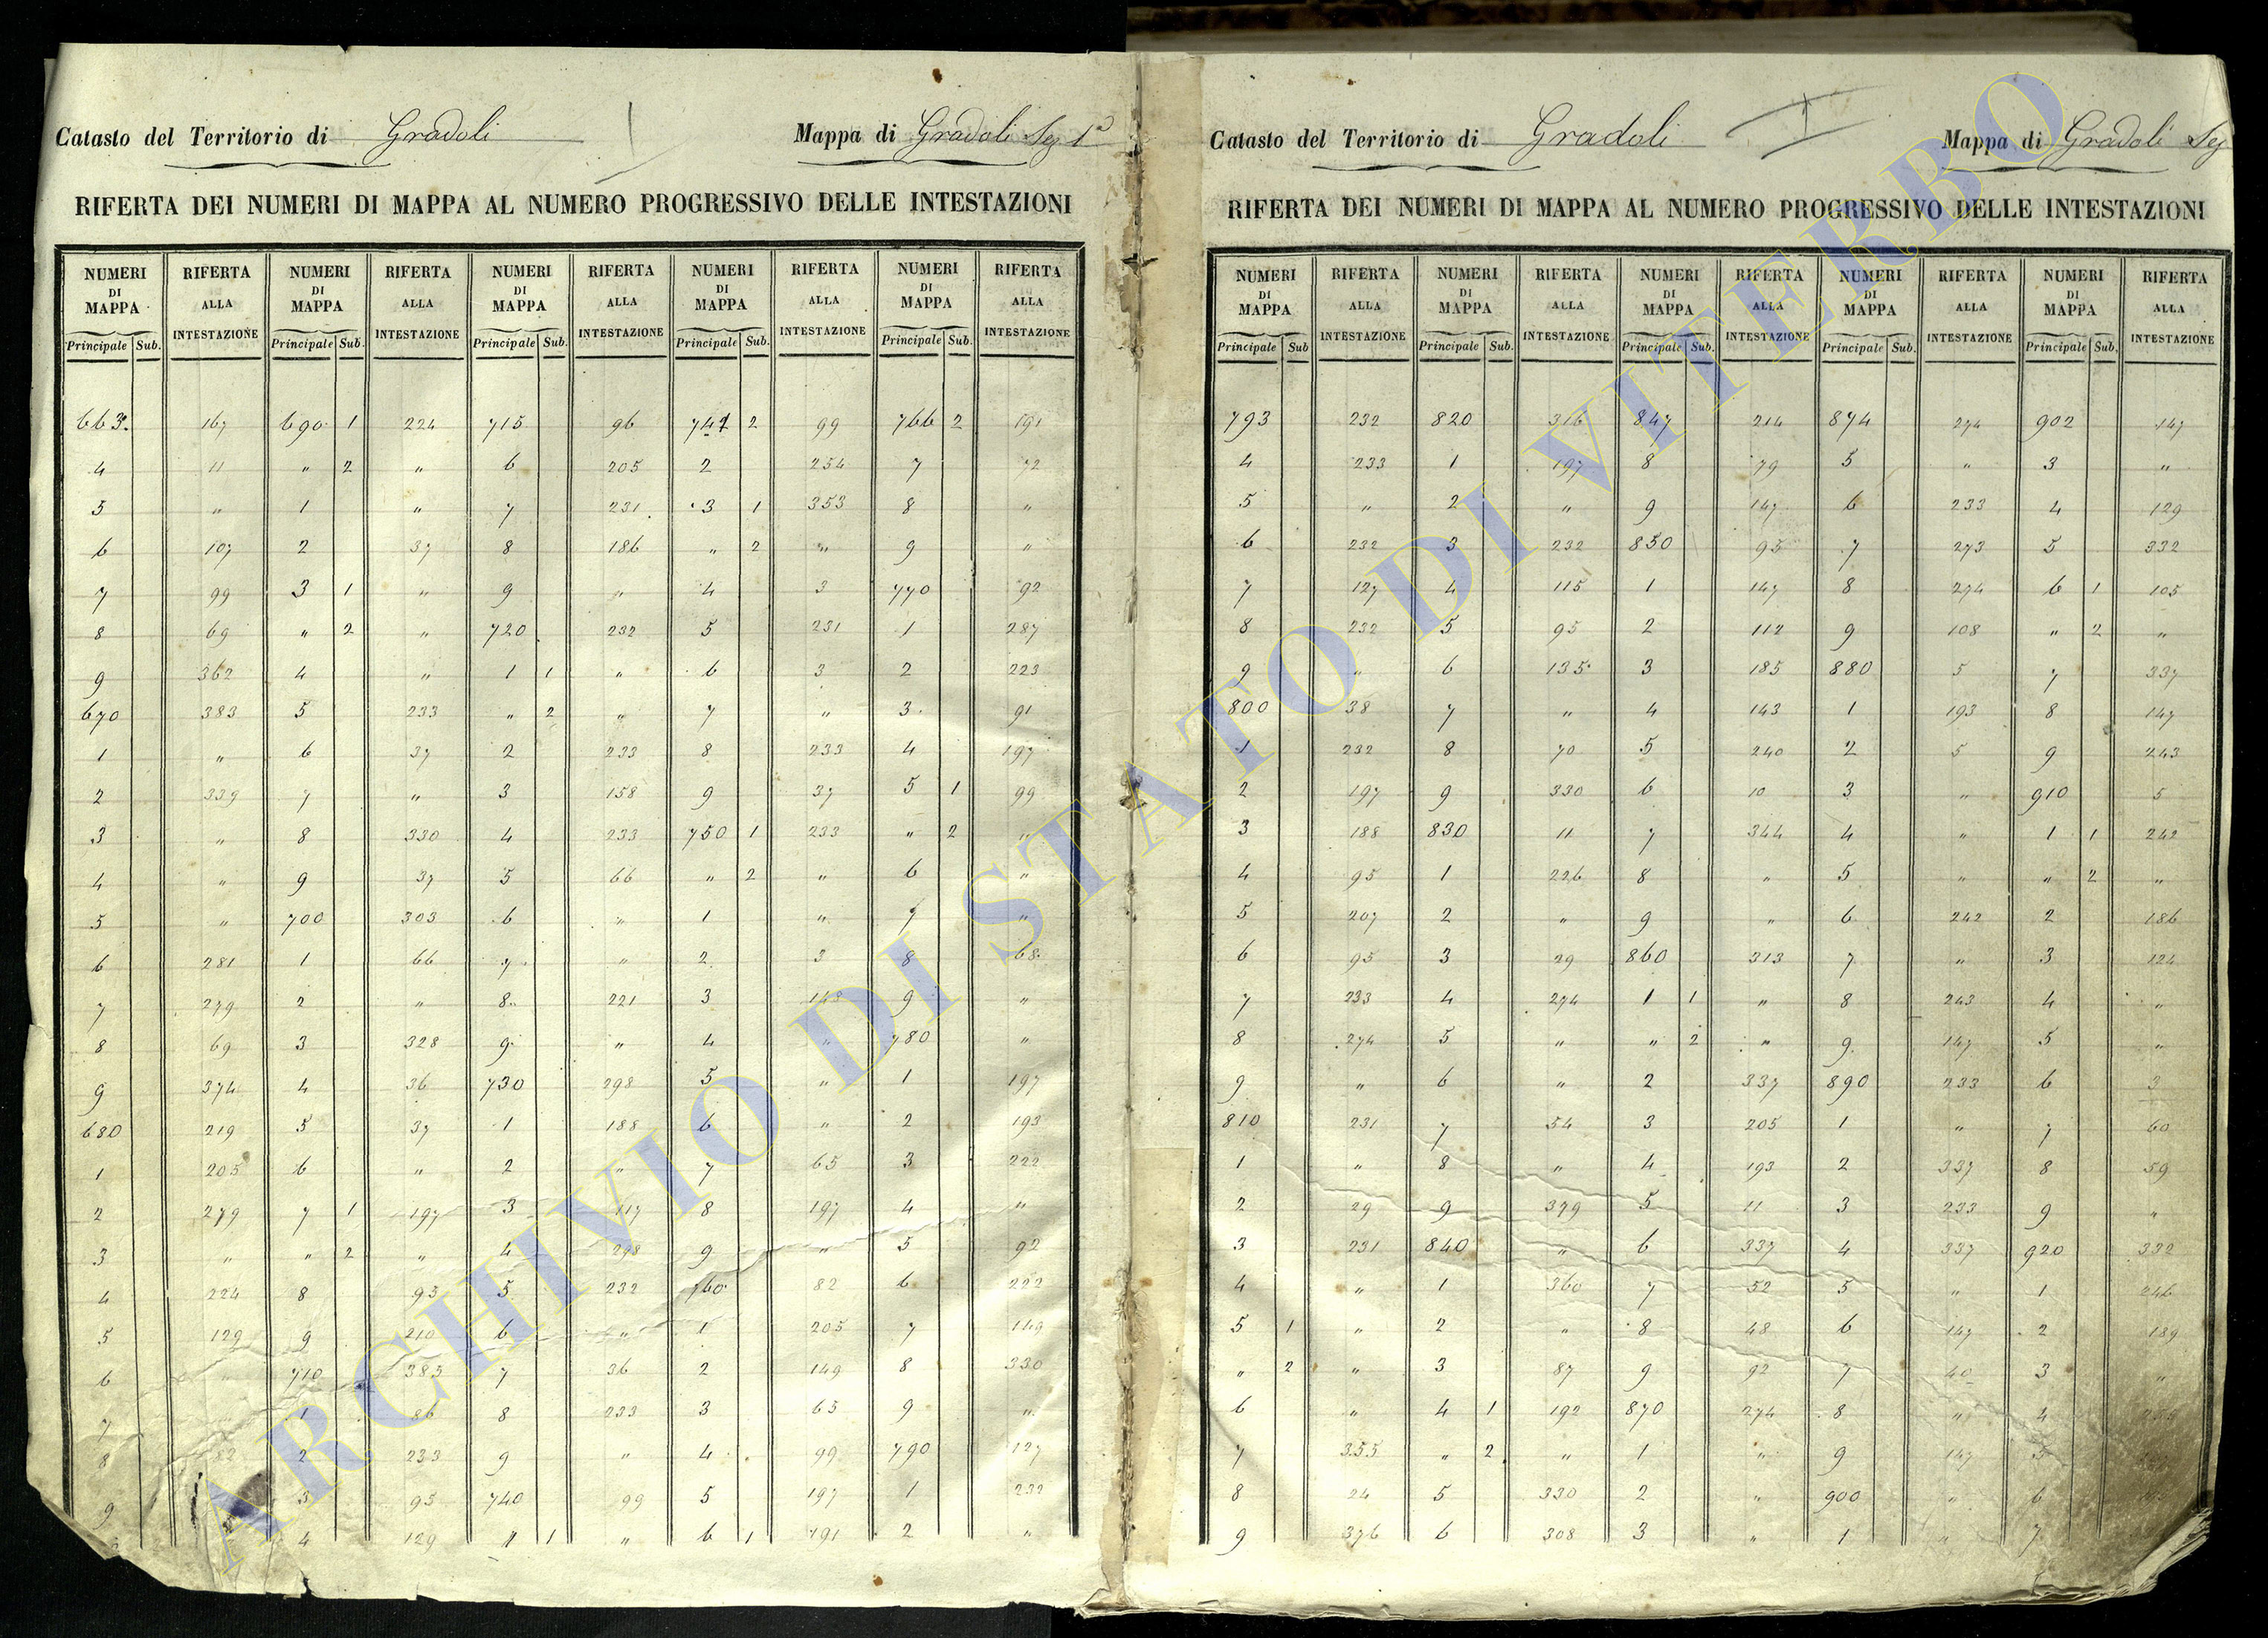 Catasto del Territorio di Gradoli I Mappa di Gradoli Sez 1ª
RIFERTA DEI NUMERI DI MAPPA AL NUMERO PROGRESSIVO DELLE INTESTAZIONI
NUMERI DI MAPPA RIFERTA ALLA INTESTAZIONE NUMERI DI MAPPA RIFERTA ALLA INTESTAZIONE NUMERI DI MAPPA RIFERTA ALLA INTESTAZIONE NUMERI DI MAPPA RIFERTA ALLA INTESTAZIONE NUMERI DI MAPPA RIFERTA ALLA INTESTAZIONE
Principale Sub. Principale Sub. Principale Sub. Principale Sub. Principale Sub.
663 167 690 1 224 715 96 741 2 99 766 2 191
4 11 " 2 " 6 205 2 254 7 72
5 " 1 " 7 231 3 1 353 8 "
6 107 2 37 8 186 " 2 " 9 "
7 99 3 1 " 9 " 4 3 770 92
8 69 " 2 " 720 232 5 231 1 287
9 362 4 " 1 1 " 6 3 2 223
670 383 5 233 " 2 " 7 " 3 91
1 " 6 37 2 233 8 233 4 197
2 339 7 " 3 158 9 37 5 1 99
3 " 8 330 4 233 750 1 233 " 2 "
4 " 9 37 5 66 " 2 " 6 "
5 " 700 303 6 " 1 " 7 "
6 281 1 66 7 " 2 3 8 68
7 279 2 " 8 221 3 148 9 "
8 69 3 328 9 " 4 " 780 "
9 374 4 36 730 298 5 " 1 197
680 219 5 37 1 188 6 " 2 193
1 205 6 " 2 " 7 65 3 222
2 279 7 1 197 3 117 8 197 4 "
3 " " 2 " 4 298 9 " 5 92
4 224 8 95 5 232 760 82 6 222
5 129 9 210 6 " 1 205 7 149
6 " 710 383 7 36 2 149 8 330
7 1 86 8 233 3 65 9 "
8 82 2 233 9 " 4 99 790 127
9 3 95 740 99 5 197 1 232
4 129 1 1 " 6 1 191 2 "
Catasto del Territorio di Gradoli I Mappa di Gradoli Sez
RIFERTA DEI NUMERI DI MAPPA AL NUMERO PROGRESSIVO DELLE INTESTAZIONI
NUMERI DI MAPPA RIFERTA ALLA INTESTAZIONE NUMERI DI MAPPA RIFERTA ALLA INTESTAZIONE NUMERI DI MAPPA RIFERTA ALLA INTESTAZIONE NUMERI DI MAPPA RIFERTA ALLA INTESTAZIONE NUMERI DI MAPPA RIFERTA ALLA INTESTAZIONE
Principale Sub Principale Sub. Principale Sub. Principale Sub. Principale Sub.
793 232 820 316 847 214 874 274 902 147
4 233 1 197 8 79 5 " 3 "
5 " 2 " 9 147 6 233 4 129
6 232 3 232 850 95 7 273 5 332
7 127 4 115 1 147 8 274 6 1 105
8 232 5 95 2 112 9 108 " 2 "
9 " 6 135 3 185 880 5 7 337
800 38 7 " 4 143 1 193 8 147
1 232 8 70 5 240 2 5 9 243
2 197 9 330 6 10 3 " 910 5
3 188 830 11 7 344 4 " 1 1 242
4 95 1 226 8 " 5 " " 2 "
5 207 2 " 9 " 6 242 2 186
6 95 3 29 860 313 7 " 3 124
7 233 4 274 1 1 " 8 243 4 "
8 274 5 " " 2 " 9 147 5 "
9 " 6 " 2 337 890 233 6 3
810 231 7 54 3 205 1 " 7 60
1 " 8 " 4 193 2 337 8 59
2 29 9 379 5 11 3 233 9 "
3 231 840 " 6 337 4 337 920 332
4 " 1 360 7 52 5 " 1 246
5 1 " 2 " 8 48 6 147 2 189
" 2 " 3 87 9 92 7 40 3 "
6 " 4 1 192 870 274 8 " 4
7 355 " 2 " 1 " 9 147 5
8 24 5 330 2 " 900 " 6
9 376 6 308 3 " 1 " 7
ARCHIVIO DI STATO DI VITERBO